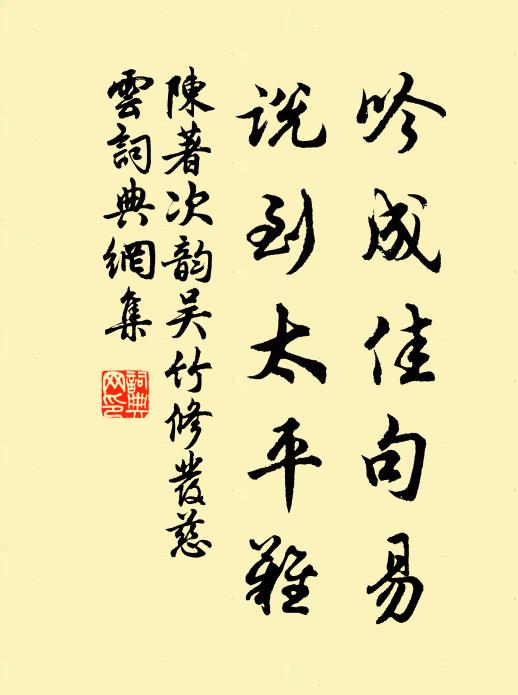 吟成佳句易
説到太平難
陳著次韵吴竹修發慈
雲詞典網集
詞典網印